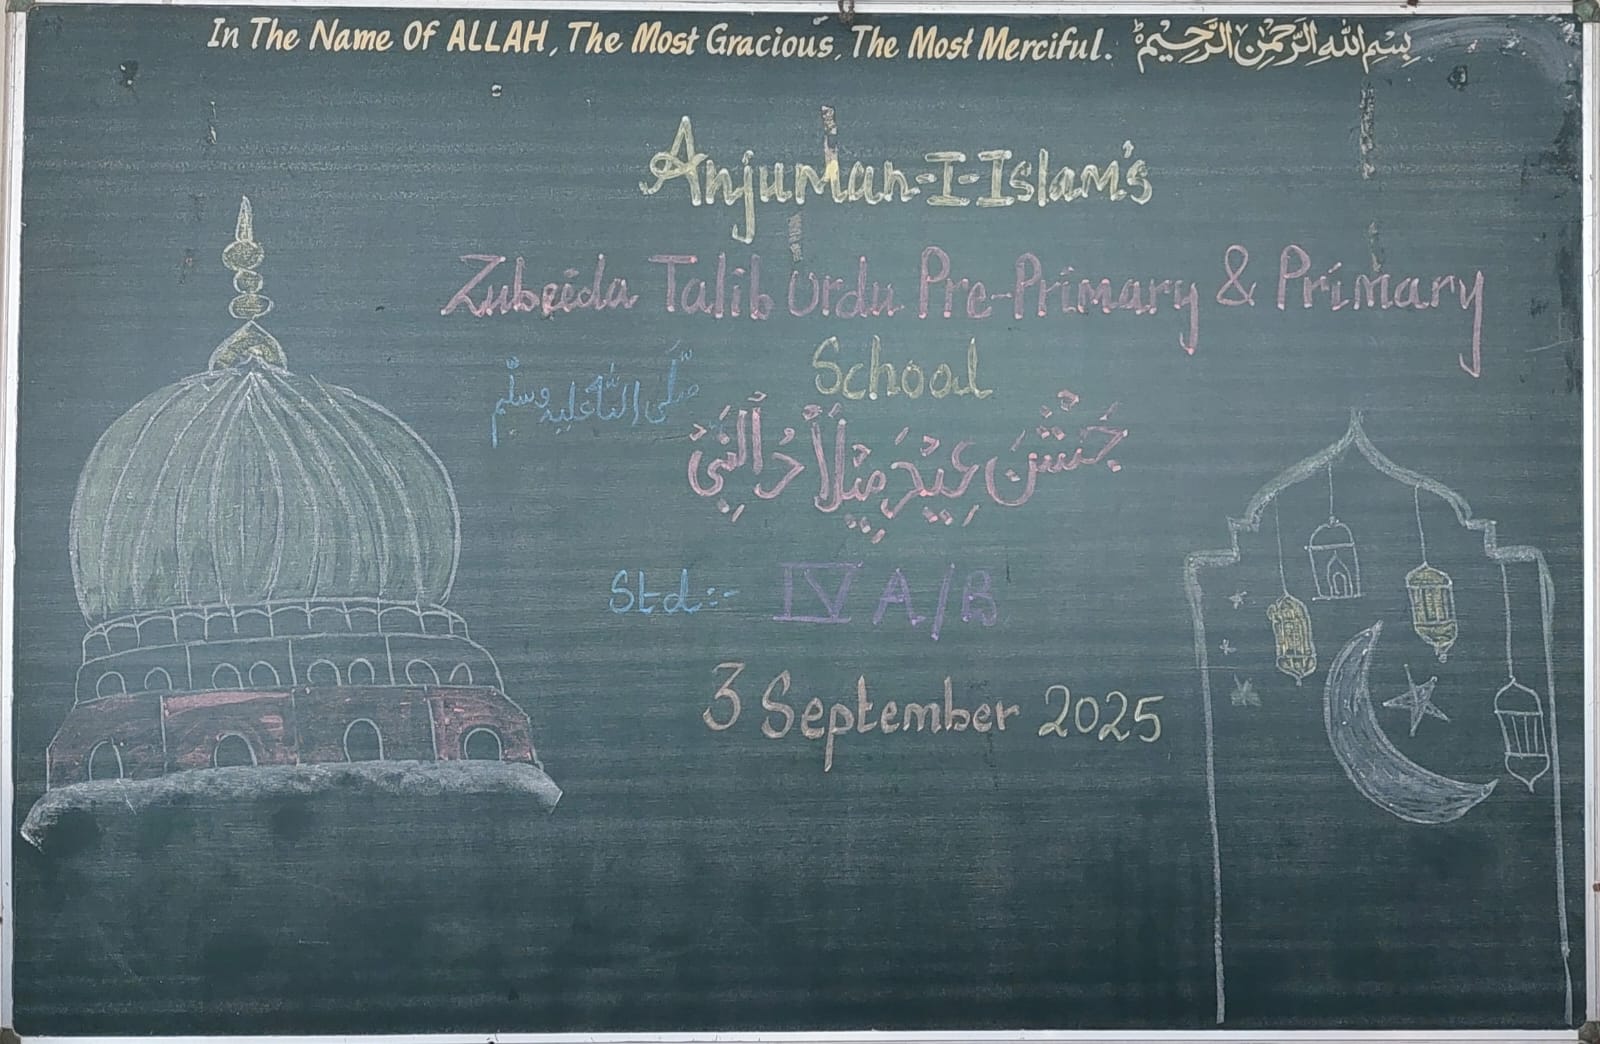 In The Name Of ALLAH, The Most Gracious, The Most Merciful. بِسْمِ اللّٰهِ الرَّحْمٰنِ الرَّحِيْمِ
Anjuman-I-Islam's
Zubeida Talib Urdu Pre-Primary & Primary
School
جَشْنَ عِيْدَ مِيْلَادُالنَّبِیْ صَلَّی اللّٰهُ عَلَیْهِ وَسَلَّم
Std:- IV A/B
3 September 2025